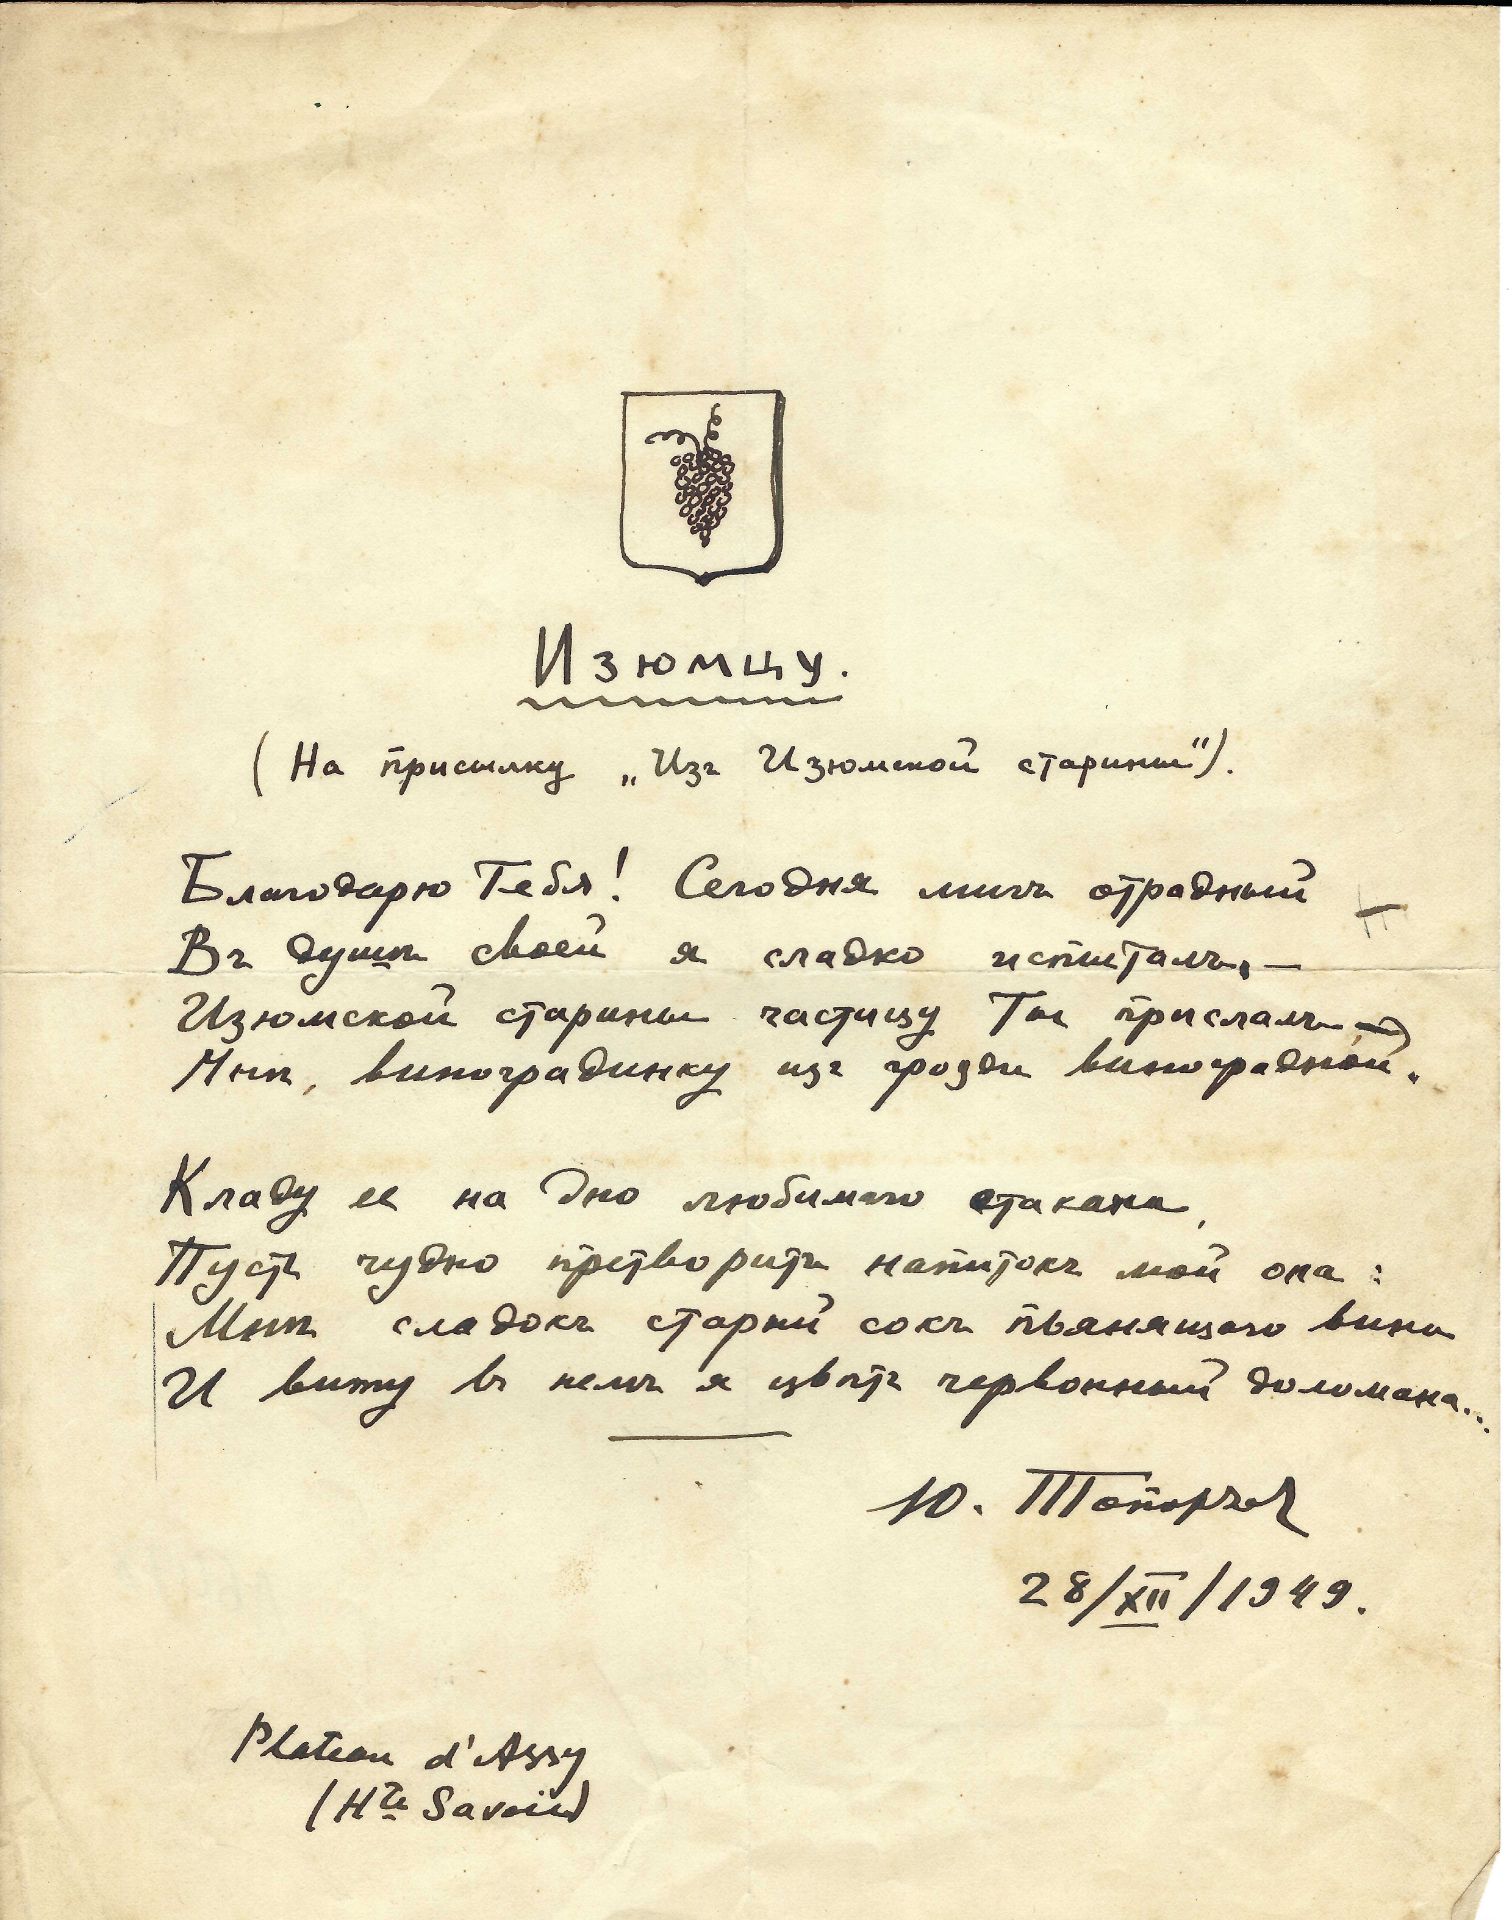 Изюмцу.
(На присылку „Изъ Изюмской старины").
Благодарю Тебя! Сегодня мигъ отрадный
Въ душѣ своей я сладко испыталъ, —
Изюмской старины частицу Ты прислалъ —
Мнѣ, виноградинку изъ грозди виноградной.
Кладу ее на дно любимаго стакана,
Пусть чудно претворитъ напитокъ мой она:
Мнѣ сладокъ старый сокъ пьянящаго вина
И вижу въ немъ я цвѣтъ червонный доломана...
Ю. Топорков
28/XII/1949.
Plateau d'Assy
(Hte Savoie)